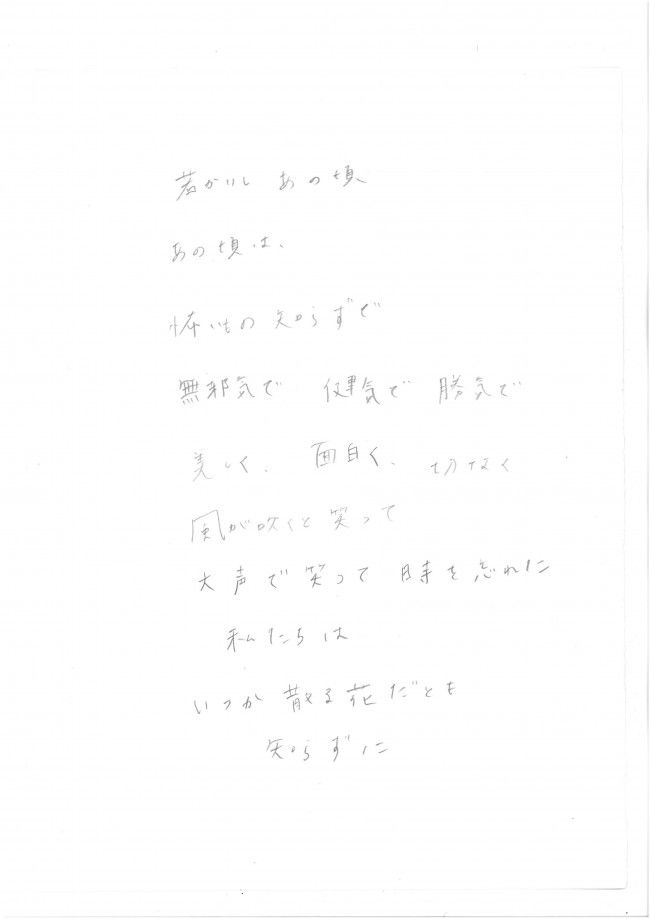 若かりし あの頃
あの頃は、
怖いもの知らずで
無邪気で 健気で 勝気で
美しく、面白く、切なく
風が吹くと笑って
大声で笑って 時を忘れた
私たちは
いつか散る花だとも
知らずに